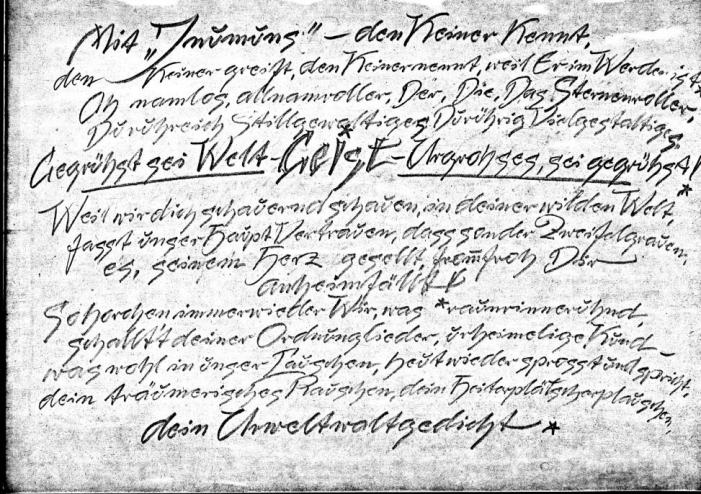 Mit „Inŭmŭns" – den Keiner Kennt,
den Keiner greift, den Keiner nennt, weil Er im Werden ist*
Oh namlos, allnamvoller, Der, Die, Das Sternenroller,
Du rŭhreich Stillgewaltiges Dŭrŭhrig Vielgestaltiges
Gegrŭhst sei Welt-Geist-Urgrohses, sei gegrŭhst!
Weil wir dich schaŭernd schaŭen, in deiner wilden Welt,*
fasst ŭnser Haŭpt Vertraŭen, dass sonder Zweifelgraŭen,
es, seinem Herz gesellt, fromfroh Dir
anheimfällt
So horchen immer wieder Wir, was *raŭnrinnerŭhnd
schallt't deiner Ordnŭnglieder, ŭrheimelige, Kŭnd –
was wohl in ŭnser Laŭschen, heŭt wieder sprosst ŭnd spricht,
dein träŭmerisches Raŭschen, dein Heiterplätscherplaŭschen,
dein Urweltwaltgedicht *